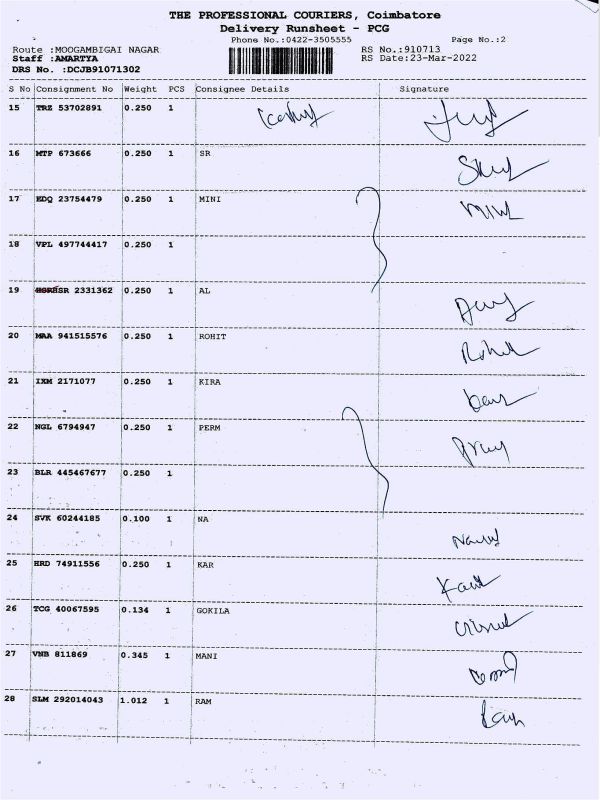 THE PROFESSIONAL COURIERS, Coimbatore
Delivery Runsheet - PCG
Phone No.:0422-3505555 Page No.:2
Route :MOOGAMBIGAI NAGAR RS No.:910713
Staff :AMARTYA RS Date:23-Mar-2022
DRS No. :DCJB91071302
S No Consignment No Weight PCS Consignee Details Signature
15 TRZ 53702891 0.250 1
16 MTP 673666 0.250 1 SR
17 EDQ 23754479 0.250 1 MINI
18 VPL 497744417 0.250 1
19 SR 2331362 0.250 1 AL
20 MAA 941515576 0.250 1 ROHIT
21 IXM 2171077 0.250 1 KIRA
22 NGL 6794947 0.250 1 PERM
23 BLR 445467677 0.250 1
24 SVK 60244185 0.100 1 NA
25 HRD 74911556 0.250 1 KAR
26 TCG 40067595 0.134 1 GOKILA
27 VNB 811869 0.345 1 MANI
28 SLM 292014043 1.012 1 RAM